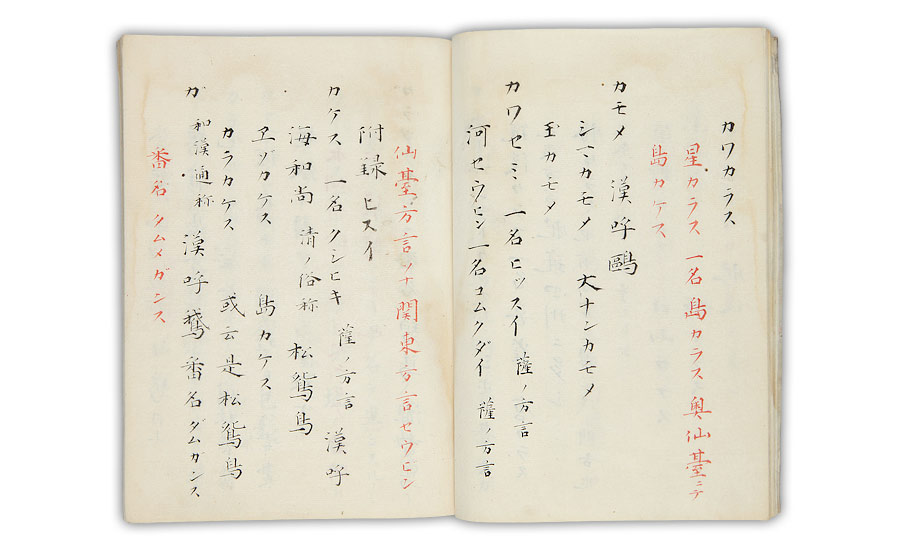 カワカラス
星カラス 一名島カラス 奥仙臺ニテ
島カケス
カモメ 漢呼鷗
シマカモメ 大ナンカモメ
玉カモメ
カワセミ 一名ヒツスイ 薩ノ方言
河セウヒン 一名コムクダイ 薩ノ方言
仙臺方言ソナ 関東方言セウヒン
附録 ヒスイ
カケス 一名クシヒキ 薩ノ方言 漢呼
海和尚 清ノ俗称 松鴛鳥
ヱゾカケス 島カケス
カラカケス 或云是松鴛鳥
カ 和漢通称 漢呼鵞 番名ダムガンス
番名 タムメガンス